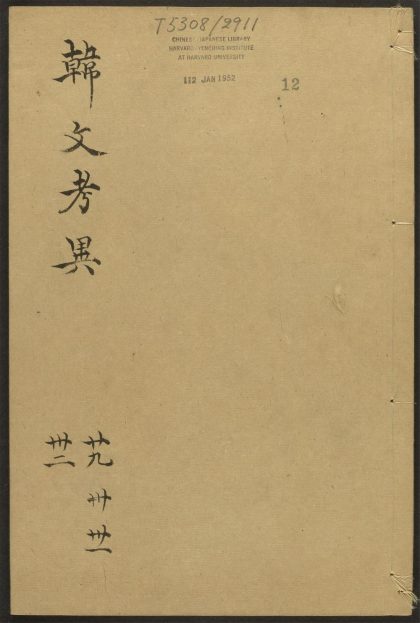 T5308/2911
CHINESE-JAPANESE LIBRARY
HARVARD-YENCHING INSTITUTE
AT HARVARD UNIVERSITY
112 JAN 1952
12
韓文考異
廿九 卅 卅一
卅二